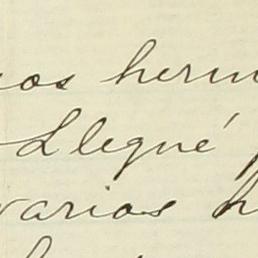 os herm
Llegué
varios h